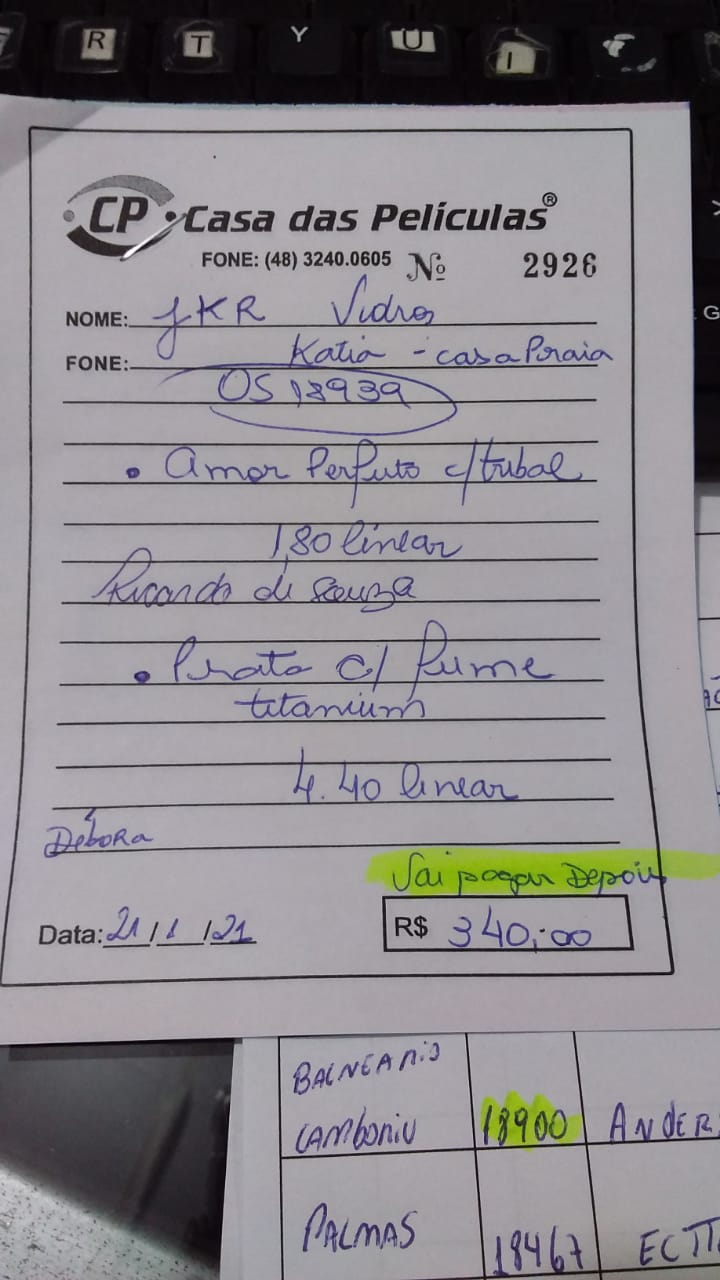 R T Y U I
G
CP Casa das Películas®
FONE: (48) 3240.0605 Nº 2926
NOME: JKR Vidros
FONE: Katia - casa Praia
OS 18939
• Amor Perfeito c/ tribal
1,80 linear
Ricardo de Souza
• Prata c/ fume
titanium
4.40 linear
Débora
Vai pagar Depois
Data: 21/1/21 R$ 340,00
BALNEARIO
CAMBORIU 18900 ANDER
PALMAS 18467